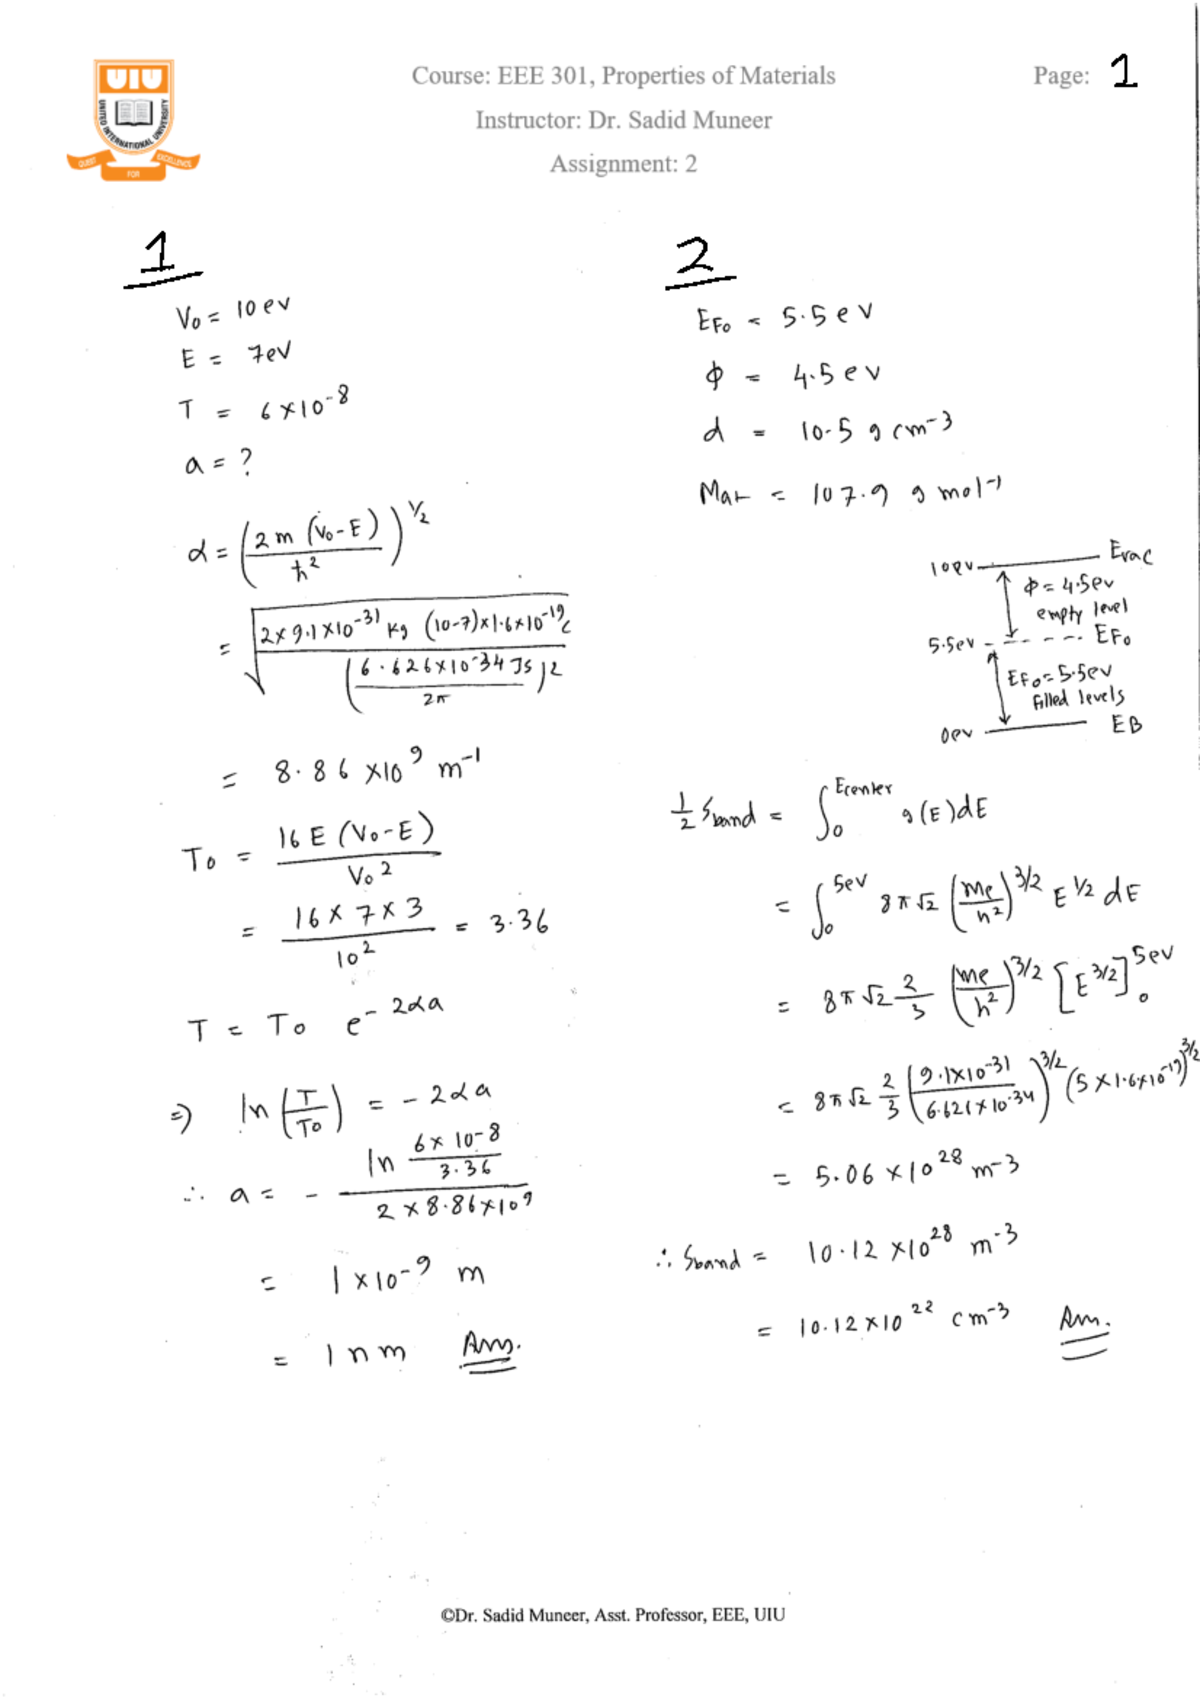 UIU
UNITED INTERNATIONAL UNIVERSITY
QUEST FOR EXCELLENCE
Course: EEE 301, Properties of Materials
Page: 1
Instructor: Dr. Sadid Muneer
Assignment: 2
1
V₀ = 10 ev
E = 7eV
T = 6×10⁻⁸
a = ?
α = (2m (V₀-E) / ħ²)^½
= √(2×9.1×10⁻³¹ kg (10-7)×1.6×10⁻¹⁹C / (6.626×10⁻³⁴ Js / 2π)²)
= 8.86 ×10⁹ m⁻¹
T₀ = 16 E (V₀-E) / V₀²
= 16 × 7 × 3 / 10² = 3.36
T = T₀ e^(-2αa)
⇒ ln (T/T₀) = -2αa
∴ a = - ln (6×10⁻⁸ / 3.36) / 2×8.86×10⁹
= 1×10⁻⁹ m
= 1 nm Ans.
2
E_F0 = 5.5 eV
Φ = 4.5 eV
d = 10.5 g cm⁻³
Mat = 107.9 g mol⁻¹
10ev Evac
Φ = 4.5ev
empty level
5.5ev E_F0
E_F0 = 5.5ev
filled levels
0ev EB
½ Sband = ∫₀^Ecenter g(E)dE
= ∫₀^5ev 8π√2 (me/h²)^3/2 E^½ dE
= 8π√2 2/3 (me/h²)^3/2 [E^3/2]₀^5ev
= 8π√2 2/3 (9.1×10⁻³¹ / 6.626×10⁻³⁴)^3/2 (5×1.6×10⁻¹⁹)^3/2
= 5.06 ×10²⁸ m⁻³
∴ Sband = 10.12 ×10²⁸ m⁻³
= 10.12×10²² cm⁻³ Ans.
©Dr. Sadid Muneer, Asst. Professor, EEE, UIU